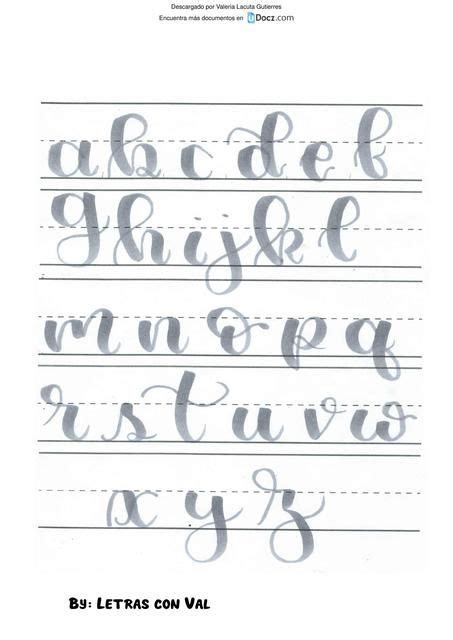 Descargado por Valeria Lacuta Gutierres
Encuentra más documentos en Docz.com
a b c d e f
g h i j k l
m n o p q
r s t u v w
x y z
By: Letras con Val